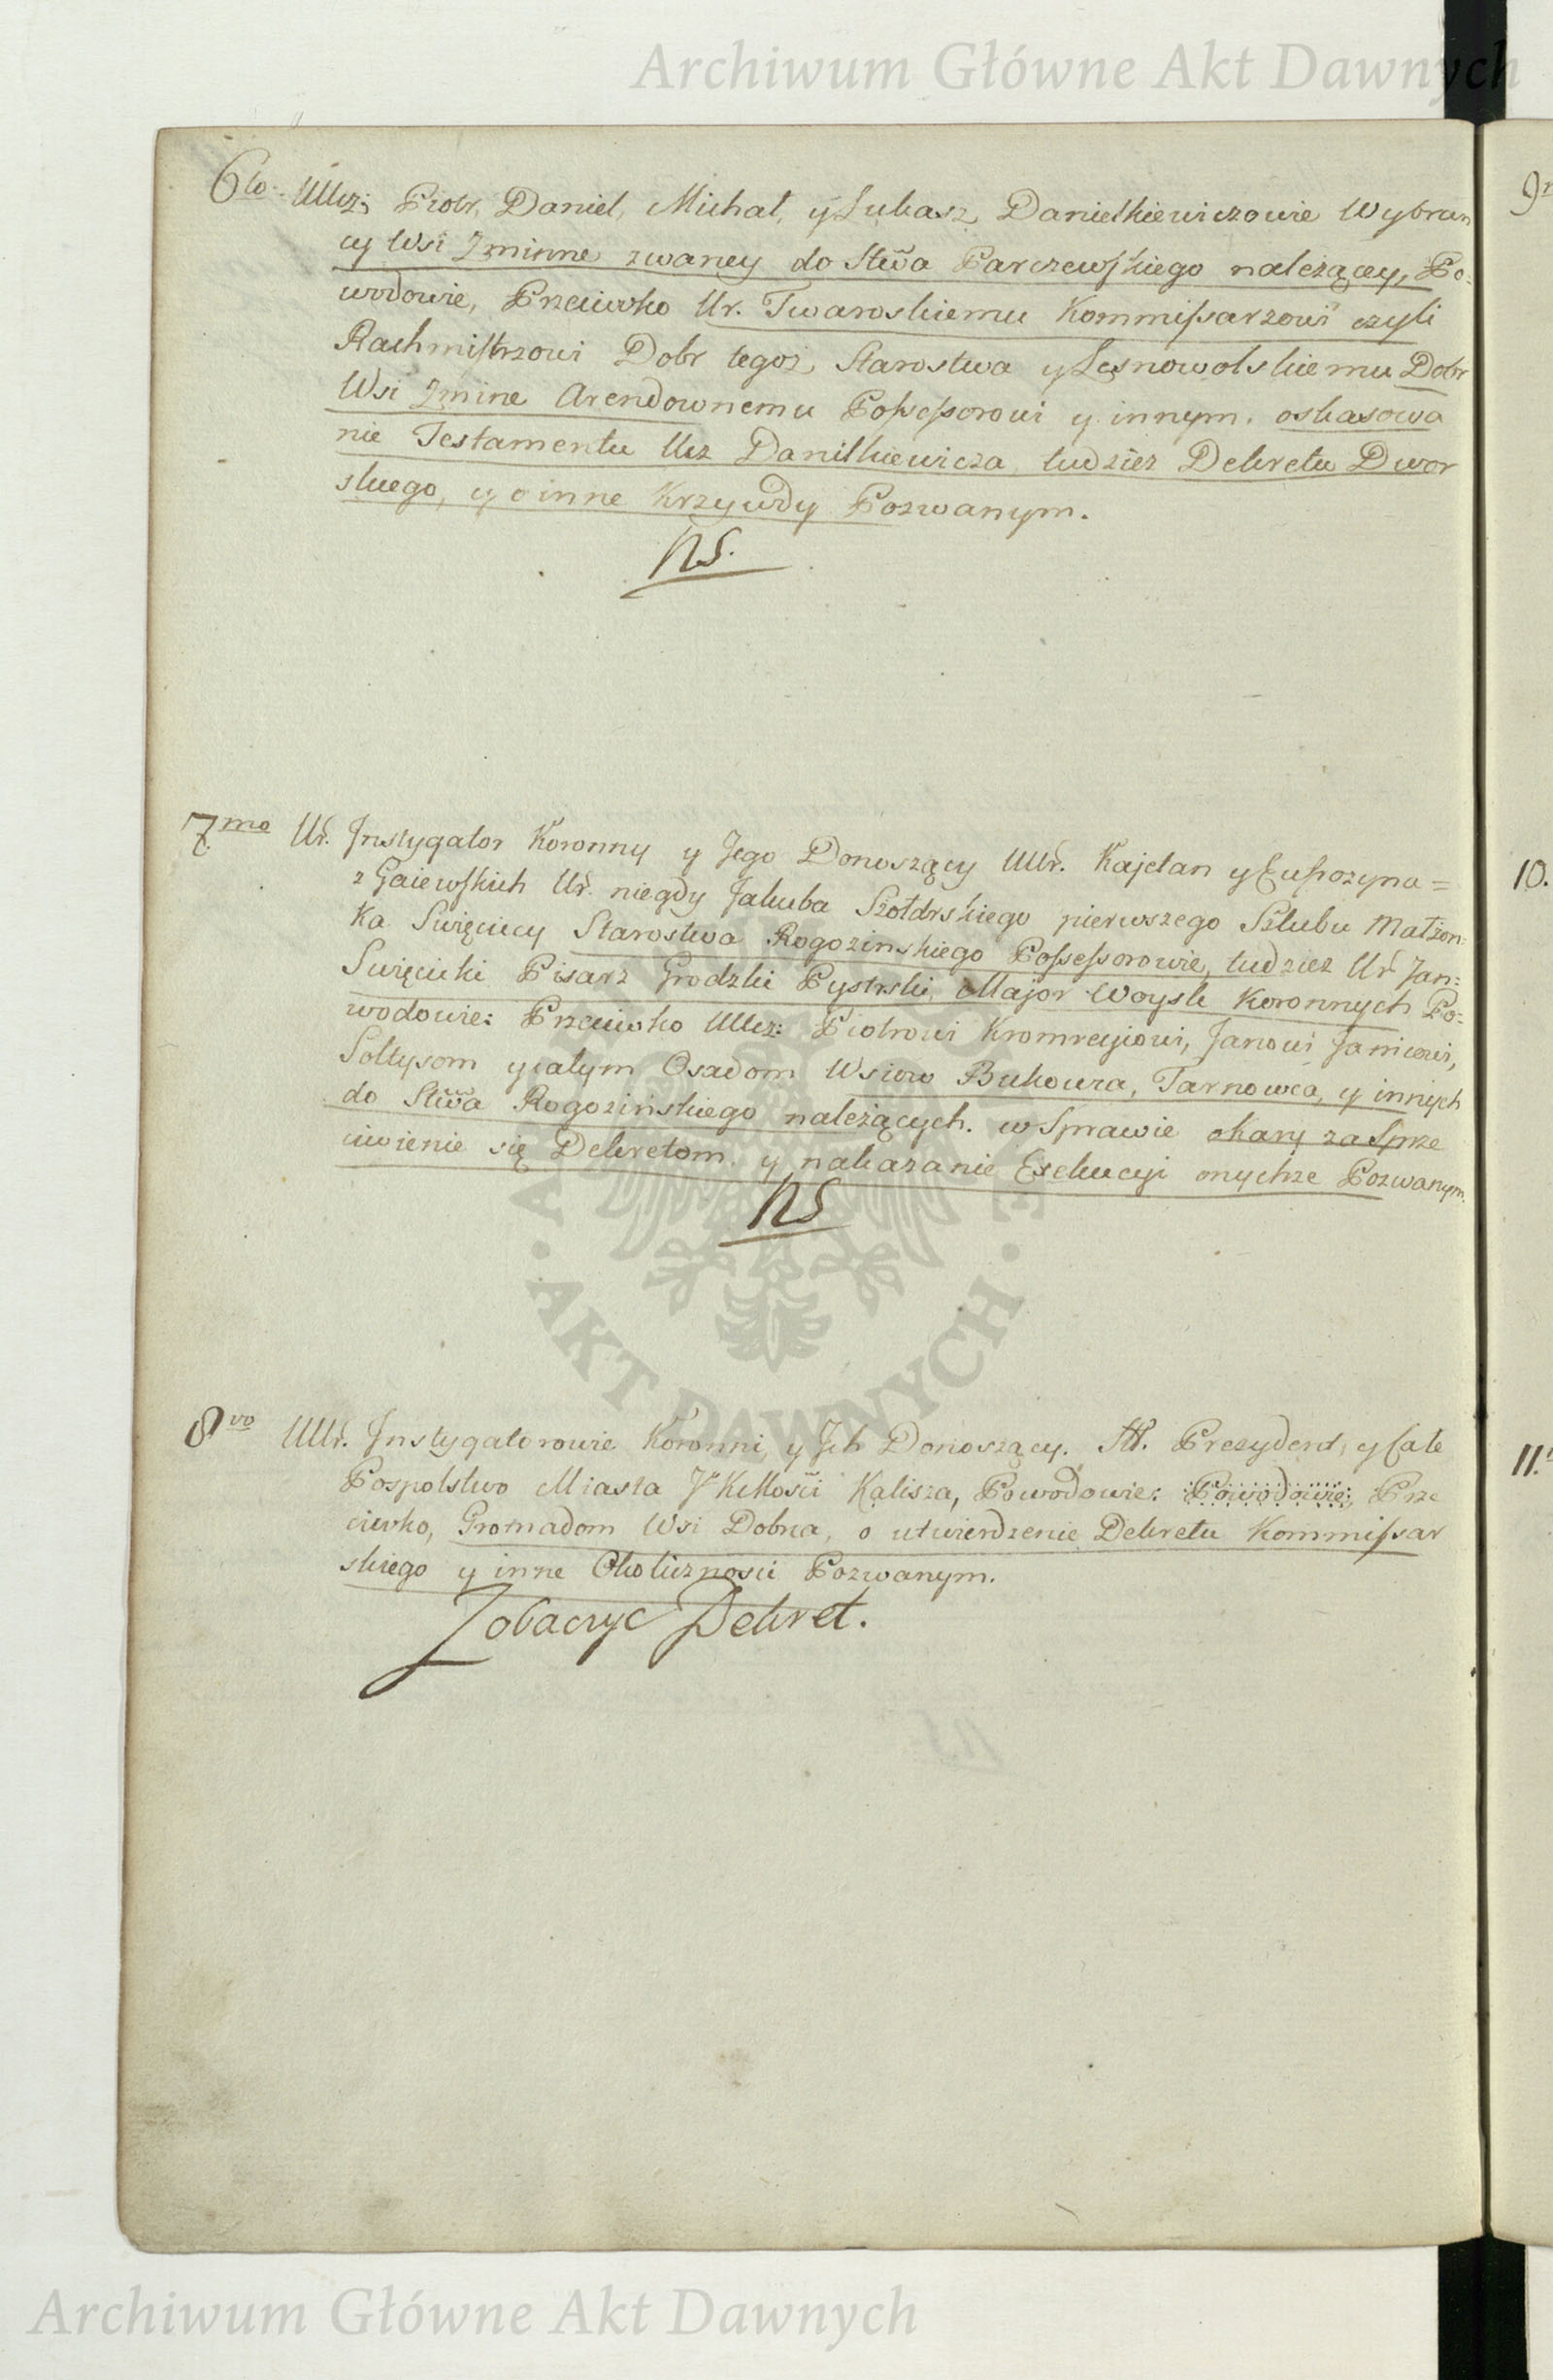 Archiwum Główne Akt Dawnych
6to UUcz: Piotr, Daniel, Michał, y Łukasz Danielkiewiczowie Wybran
cy Wsi Zminne zwaney do Stwa Parczewskiego należącey, Po-
wodowie, Przeciwko Ur. Twarowskiemu Kommissarzowi czyli
Rachmistrzowi Dobr tegoż Starostwa y Lesnowolskiemu Dobr
Wsi Zmine Arendownemu Possessorowi y innym. oskasowa
nie Testamentu Ucz Danilkiewicza tudziez Dekretu Dwor
skiego, y o inne Krzywdy Pozwanym.
NS.
7mo Ur. Instygator Koronny y Jego Donoszący UUr. Kajetan y Eufrozyna =
z Gaiewskich Ur. niegdy Jakuba Szołdrskiego pierwszego Szlubu Małżon=
Ka Swięciccy Starostwa Rogozinskiego Possessorowie, tudziez Ur Jan=
Swięcicki Pisarz Grodzki Pyzdrski, Major Woysk Koronnych Po=
wodowie: Przeciwko UUcz: Piotrowi Kromreyiowi, Janowi Janicowi,
Sołtysom y całym Osadom Wsiow Bukowca, Tarnowca, y innych
do Stwa Rogozińskiego należących. w Sprawie okarę za Sprze
ciwienie się Dekretom. y nakazanie Exekucyi onychze Pozwanym.
NS
8vo UUr. Instygatorowie Koronni y Jch Donoszący. Sł. Prezydent, y Całe
Pospolstwo Miasta JKMości Kalisza, Powodowie: Powodowie: Prze
ciwko, Gromadom Wsi Dobrca, o utwierdzenie Dekretu Kommissar
skiego y inne Okoliczności Pozwanym.
Zobaczyc Dekret.
10.
11.
AKT DAWNYCH
Archiwum Główne Akt Dawnych